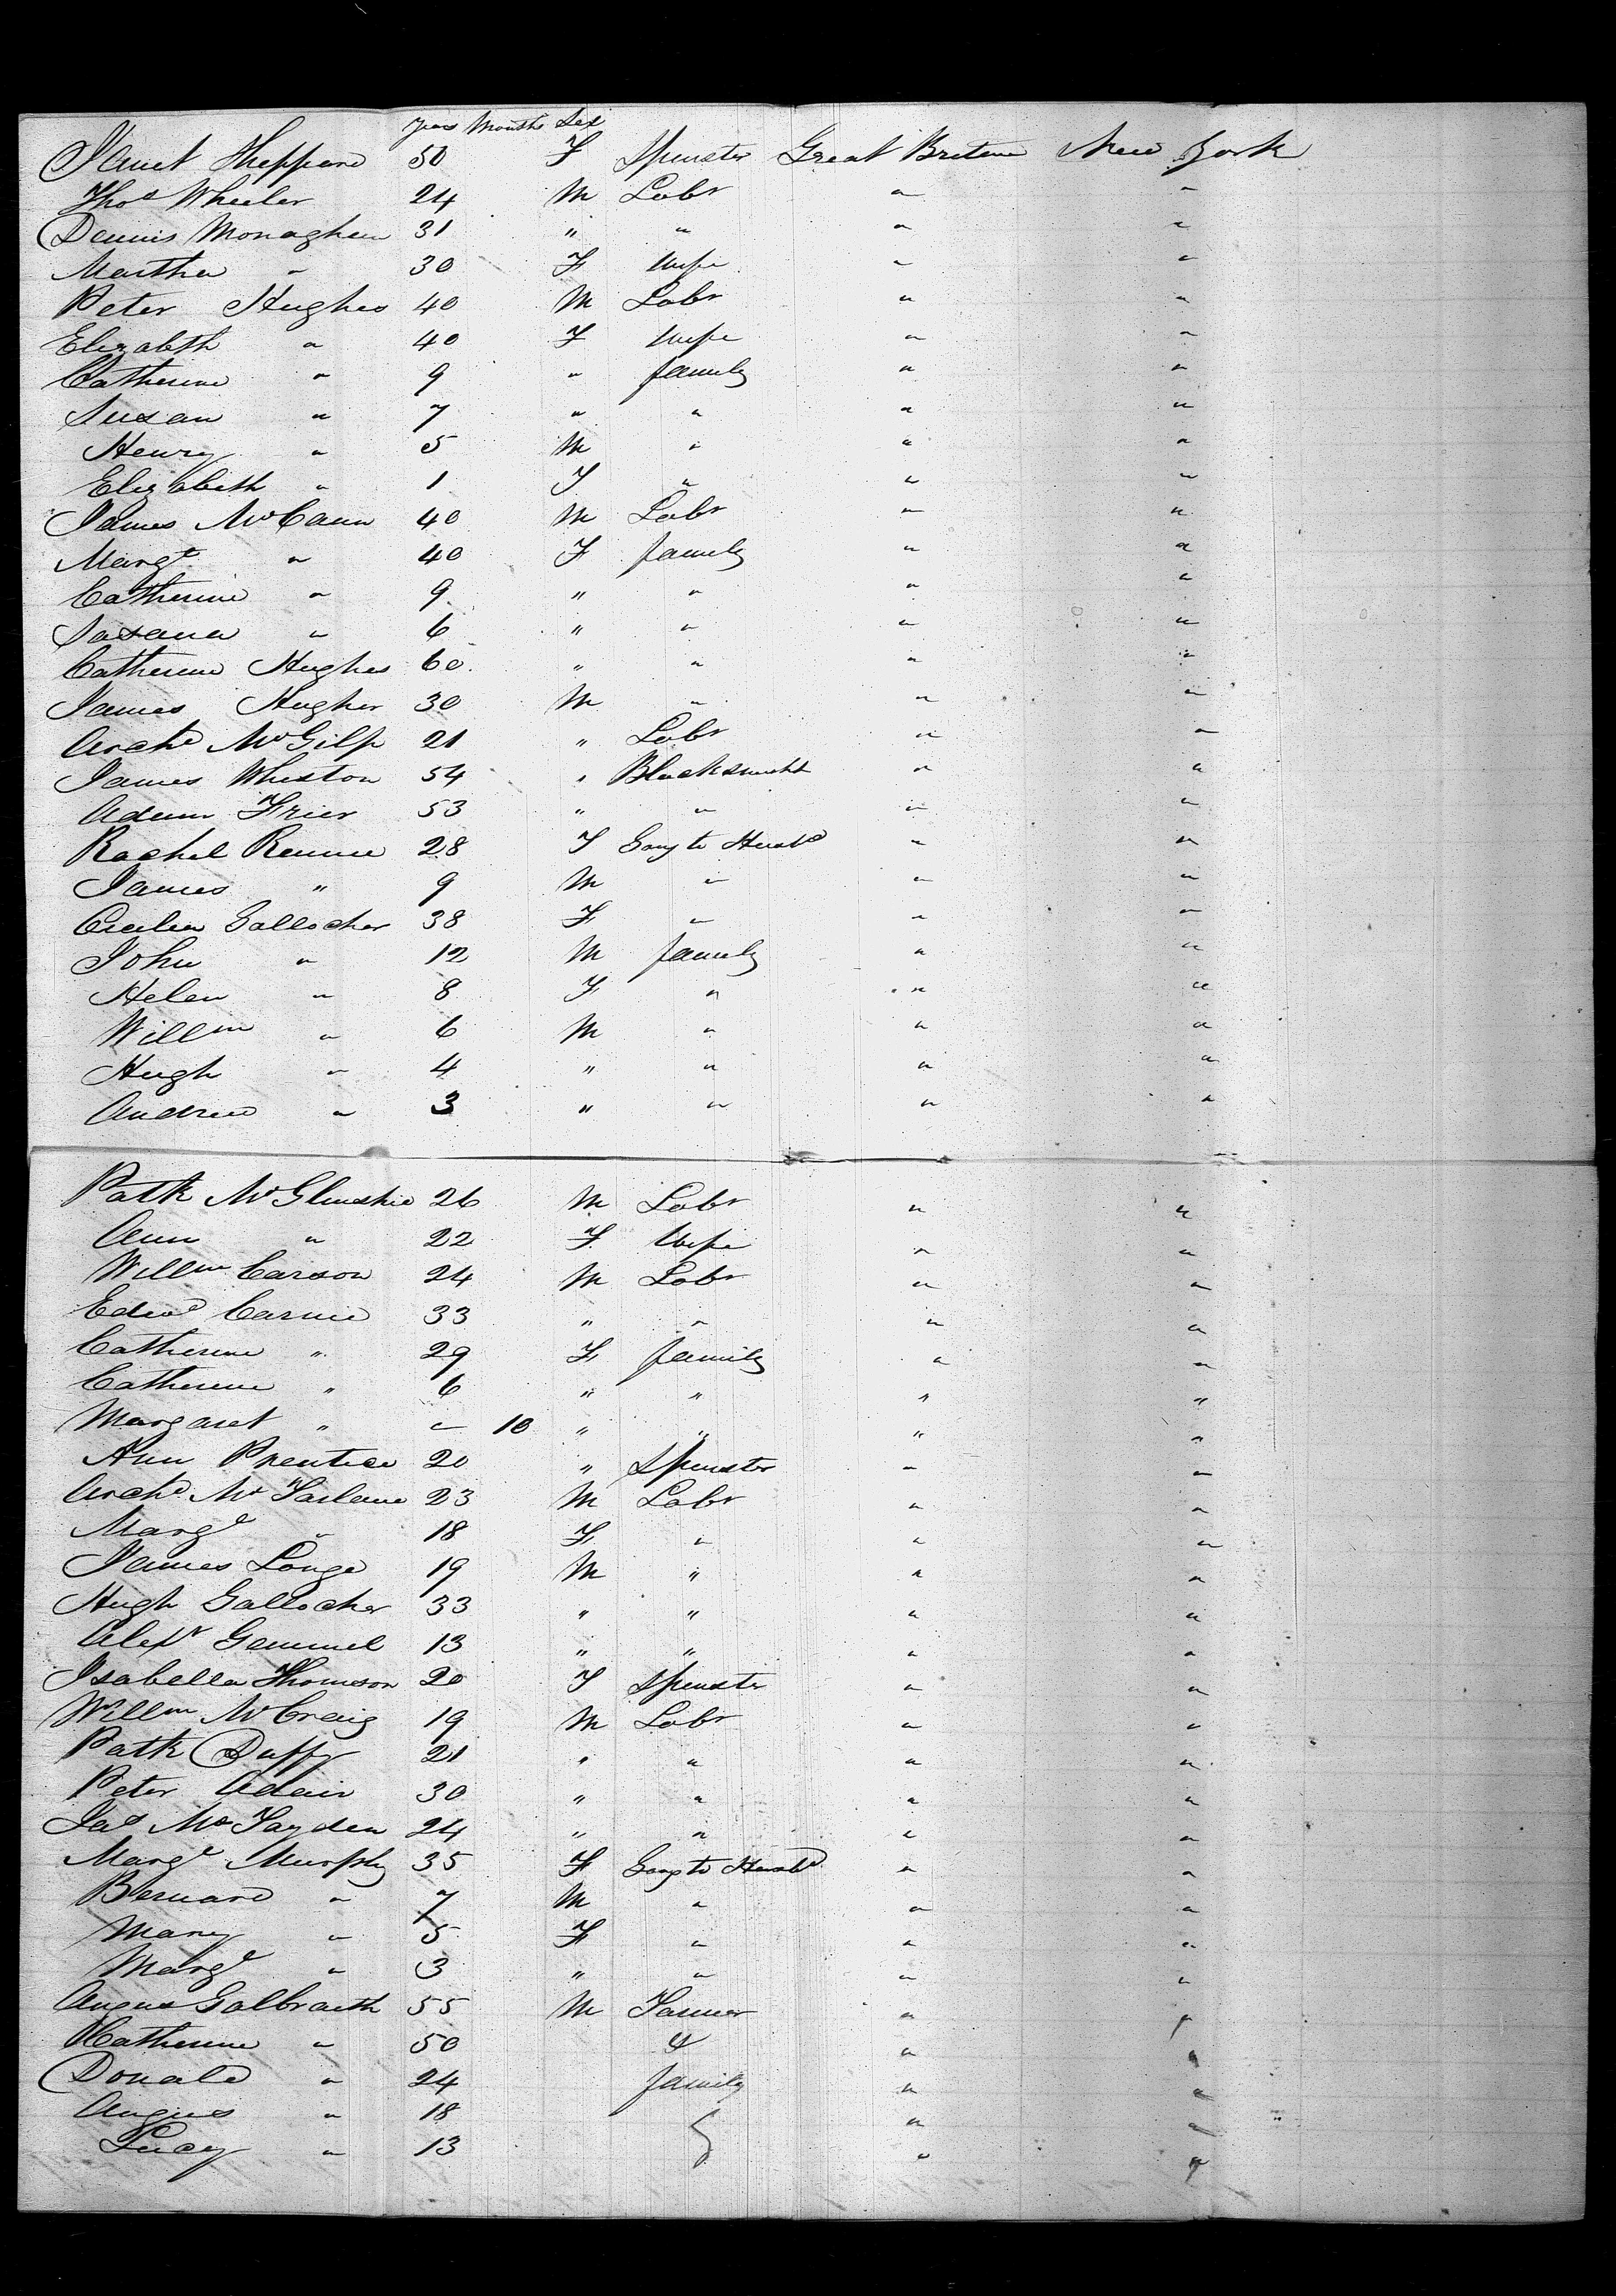 Years Months Sex
Janet Sheppard 50 F Spinster Great Britain New York
Thos Wheeler 24 M Labr " "
Dennis Monaghan 31 " " " "
Martha " 30 F Wife " "
Peter Hughes 40 M Labr " "
Elizabeth " 40 F Wife " "
Catherine " 9 " family " "
Susan " 7 " " " "
Henry " 5 M " " "
Elizabeth " 1 F " " "
James McCann 40 M Labr " "
Margt " 40 F family " "
Catherine " 9 " " " "
Sasana " 6 " " " "
Catherine Hughes 60 " " " "
James Hughes 30 M " " "
Archd McGilp 21 " Labr " "
James Whiston 54 " Blacksmith " "
Adam Frier 53 " " " "
Rachel Rennie 28 F Going to Husbd " "
James " 9 M " " "
Cecilia Gallocher 38 F " " "
John " 12 M family " "
Helen " 8 F " " "
Willm " 6 M " " "
Hugh " 4 " " " "
Andrew " 3 " " " "
Patk McGluskie 26 M Labr " "
Ann " 22 F Wife " "
Willm Carson 24 M Labr " "
Edwd Carnie 33 " " " "
Catherine " 29 F family " "
Catherine " 6 " " " "
Margaret " " 10 " " " "
Ann Prentice 20 " Spinster " "
Archd McFarlane 23 M Labr " "
Margt " 18 F " " "
James Longe 19 M " " "
Hugh Gallocher 33 " " " "
Alexr Gemmel 13 " " " "
Isabella Thomson 20 F Spinster " "
Willm McCraig 19 M Labr " "
Patk Duffy 21 " " " "
Peter Adair 30 " " " "
Jas McFayden 24 " " " "
Margt Murphy 35 F Going to Husbd " "
Bernard " 7 M " " "
Mary " 5 F " " "
Margt " 3 " " " "
Angus Galbraith 55 M Farmer " "
Catherine " 50 & " "
Donald " 24 family " "
Angus " 18 " "
Lucy " 13 " "